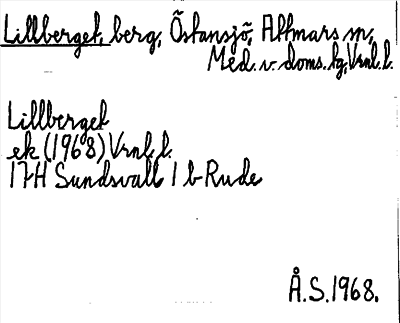 Lillberget, berg, Östansjö, Attmars sn,
Med. v. doms. hg, Vrnl. l.
Lillberget
ek (1968) Vrnl. l.
17H Sundsvall 1 b Rude
Å.S. 1968.